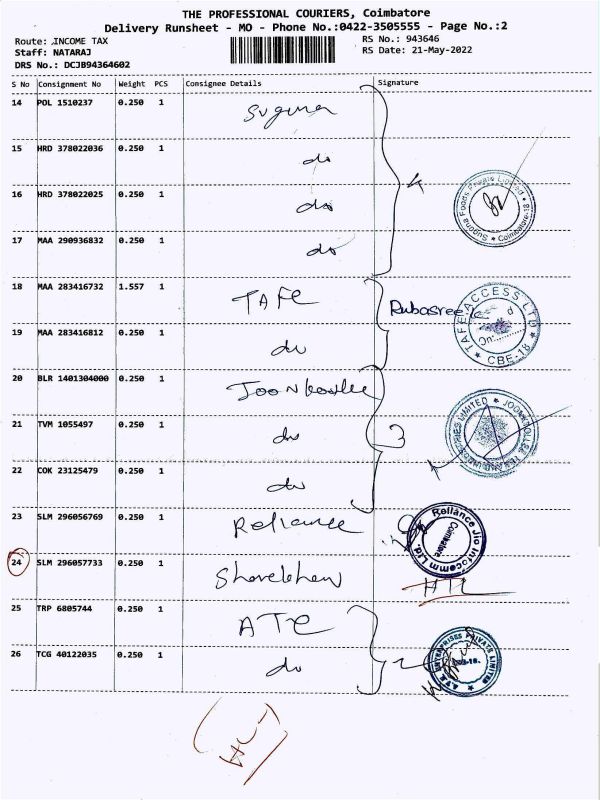 THE PROFESSIONAL COURIERS, Coimbatore
Delivery Runsheet - MO - Phone No.:0422-3505555 - Page No.:2
Route: INCOME TAX
RS No.: 943646
Staff: NATARAJ
RS Date: 21-May-2022
DRS No.: DCJB94364602
S No Consignment No Weight PCS Consignee Details Signature
14 POL 1510237 0.250 1 Suguna
15 HRD 378022036 0.250 1 do
16 HRD 378022025 0.250 1 do
4
17 MAA 290936832 0.250 1 do
18 MAA 283416732 1.557 1 TAFE
Rubasree
TAFE ACCESS LTD
CBE-18
19 MAA 283416812 0.250 1 do
20 BLR 1401304000 0.250 1
21 TVM 1055497 0.250 1 do
3
22 COK 23125479 0.250 1 do
23 SLM 296056769 0.250 1 Reliance
Reliance Jio Infocomm Ltd.
Coimbatore
24 SLM 296057733 0.250 1
25 TRP 6805744 0.250 1 ATE
26 TCG 40122035 0.250 1 do
2